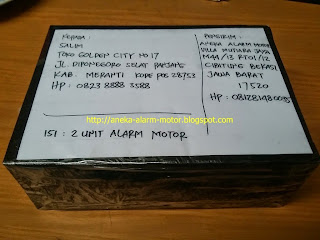 KEPADA :
SALIM
TOKO GOLDEN CITY NO 17
JL. DIPONEGORO SELAT PANJANG
KAB. MERANTI KODE POS 28753
HP : 0823 8888 3588
PENGIRIM :
ANEKA ALARM MOTOR
VILLA MUTIARA JAYA
M44/13 RT01/12
CIBITUNG BEKASI
JAWA BARAT
17520
HP :
http://aneka-alarm-motor.blogspot.com
ISI : 2 UNIT ALARM MOTOR